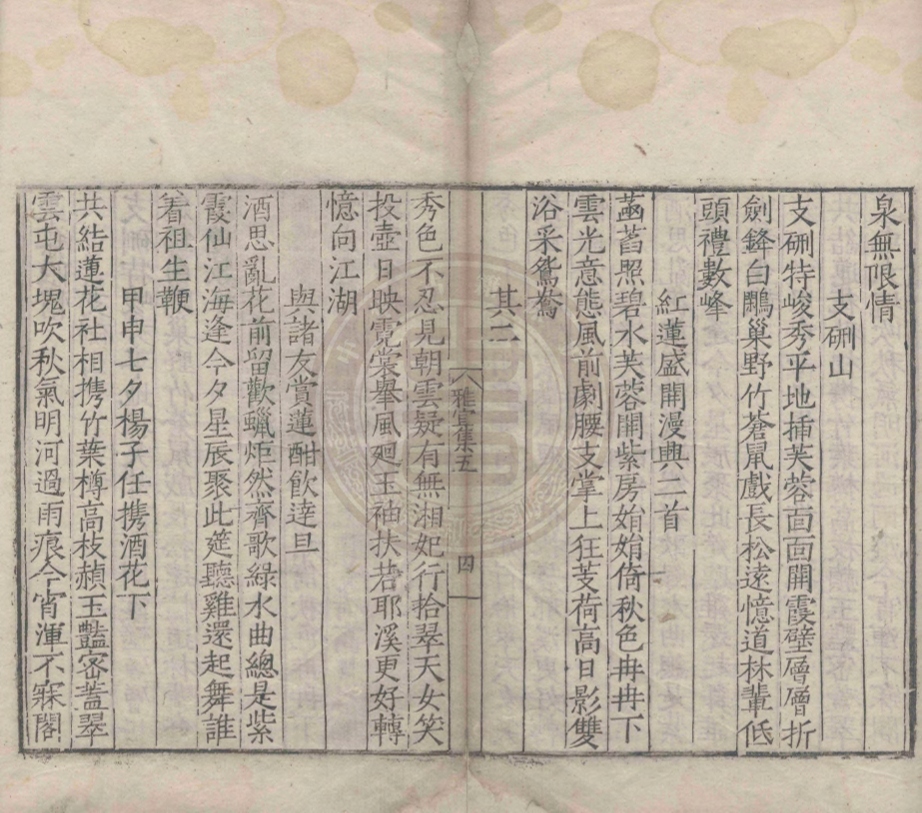 泉無限情
支硎山
支硎特峻秀平地揷芙蓉面面開霞壁層層折
劍鋒白鷳巢野竹蒼鼠戲長松遠憶道林輩低
頭禮數峰
紅蓮盛開漫興二首
菡萏照碧水芙蓉開紫房娟娟倚秋色冉冉下
雲光意態風前劇腰支掌上狂芰荷高日影雙
浴采鴛鴦
其二
秀色不忍見朝雲疑有無湘妃行拾翠天女笑
投壺日映霓裳舉風廻玉袖扶若耶溪更好轉
憶向江湖
雅宜集五
四
與諸友賞蓮酣飲達旦
酒思亂花前留歡蠟炬然齊歌綠水曲總是紫
霞仙江海逢今夕星辰聚此筵聽雞還起舞誰
着祖生鞭
甲申七夕楊子任攜酒花下
共結蓮花社相攜竹葉樽高枝赬玉豔密蓋翠
雲屯大塊吹秋氣明河過雨痕今宵渾不寐閣